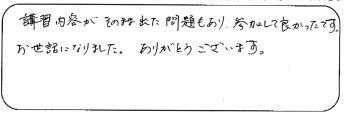 講習内容がそのまま出た問題もあり、参加して良かったです。
お世話になりました。ありがとうございます。